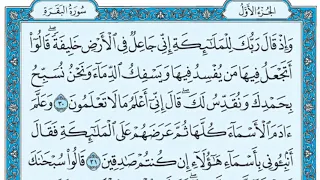 الجزء الأول سورة البقرة
وَإِذْ قَالَ رَبُّكَ لِلْمَلَٰٓئِكَةِ إِنِّى جَاعِلٌ فِى ٱلْأَرْضِ خَلِيفَةً ۖ قَالُوٓا۟
أَتَجْعَلُ فِيهَا مَن يُفْسِدُ فِيهَا وَيَسْفِكُ ٱلدِّمَآءَ وَنَحْنُ نُسَبِّحُ
بِحَمْدِكَ وَنُقَدِّسُ لَكَ ۖ قَالَ إِنِّىٓ أَعْلَمُ مَا لَا تَعْلَمُونَ ٣٠ وَعَلَّمَ
ءَادَمَ ٱلْأَسْمَآءَ كُلَّهَا ثُمَّ عَرَضَهُمْ عَلَى ٱلْمَلَٰٓئِكَةِ فَقَالَ
أَنۢبِـُٔونِى بِأَسْمَآءِ هَٰٓؤُلَآءِ إِن كُنتُمْ صَٰدِقِينَ ٣١ قَالُوا۟ سُبْحَٰنَكَ